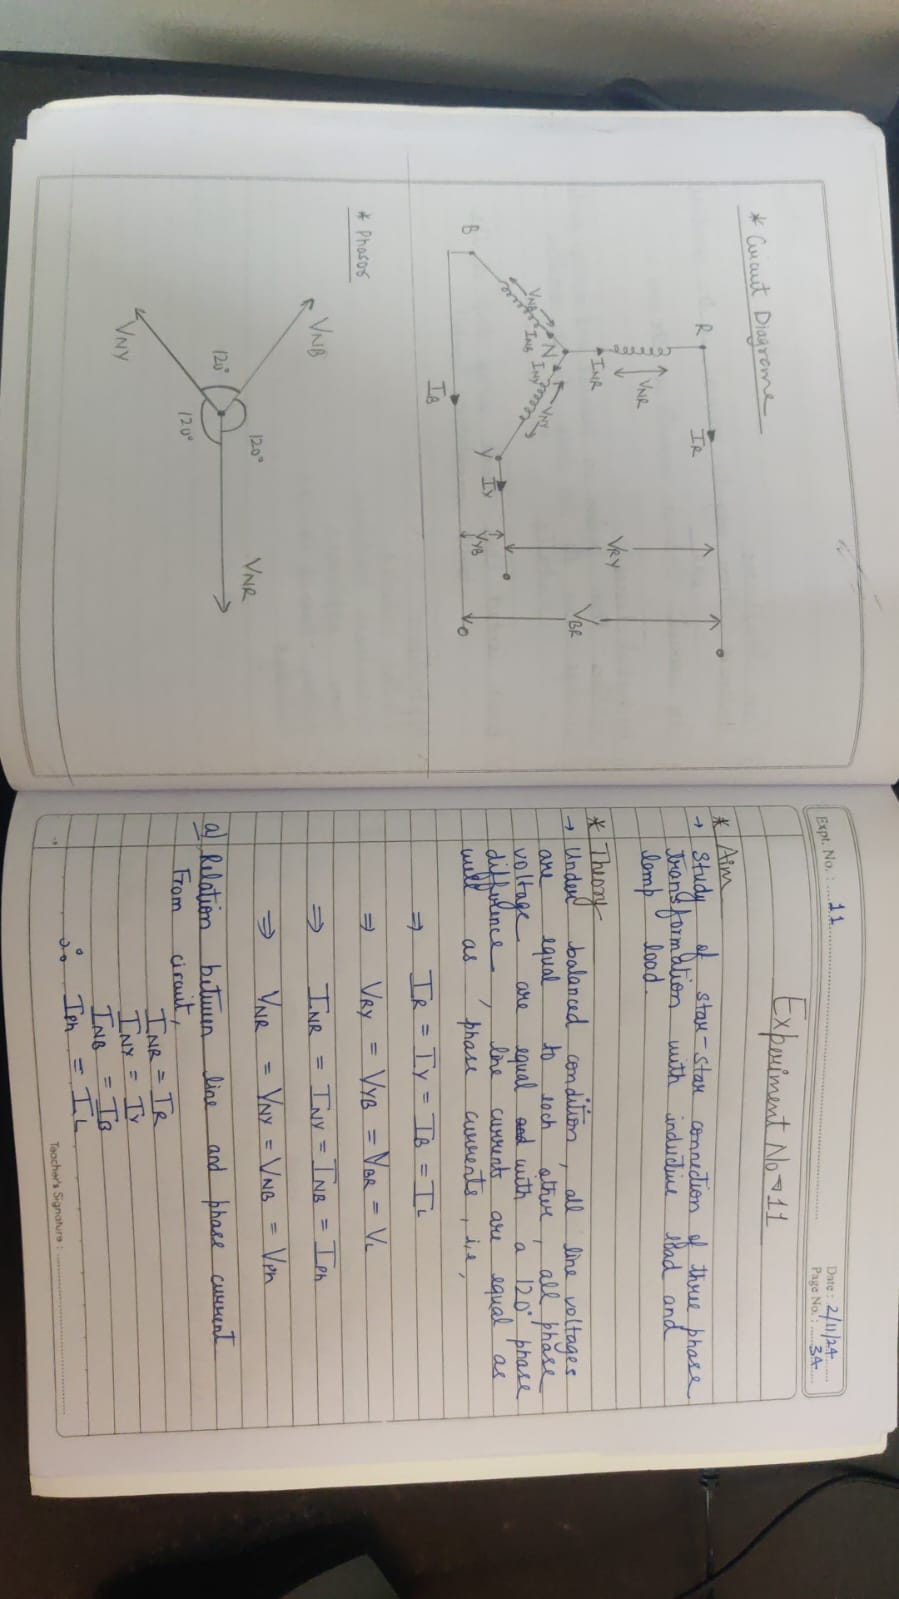 * Circuit Diagrame
R
I_R
V_NR
I_NR
V_RY
V_BR
N
V_NB
I_NB
I_NY
V_NY
B
Y
I_Y
V_YB
I_B
* Phasor
V_NB
120°
V_NR
120°
120°
V_NY
Expt. No. : 11
Date : 2/11/24
Page No. : 34
Experiment No 11
* Aim
→ Study of star-star connection of three phase
transformation with inductive load and
lamp load.
* Theory
→ Under balanced condition, all line voltages
are equal to each other, all phase
voltage are equal and with a 120° phase
difference, line currents are equal as
well as phase currents, i.e,
⇒ I_R = I_Y = I_B = I_L
⇒ V_RY = V_YB = V_BR = V_L
⇒ I_NR = I_NY = I_NB = I_Ph
⇒ V_NR = V_NY = V_NB = V_Ph
a) Relation between line and phase current
From circuit,
I_NR = I_R
I_NY = I_Y
I_NB = I_B
∴ I_Ph = I_L
Teacher's Signature :